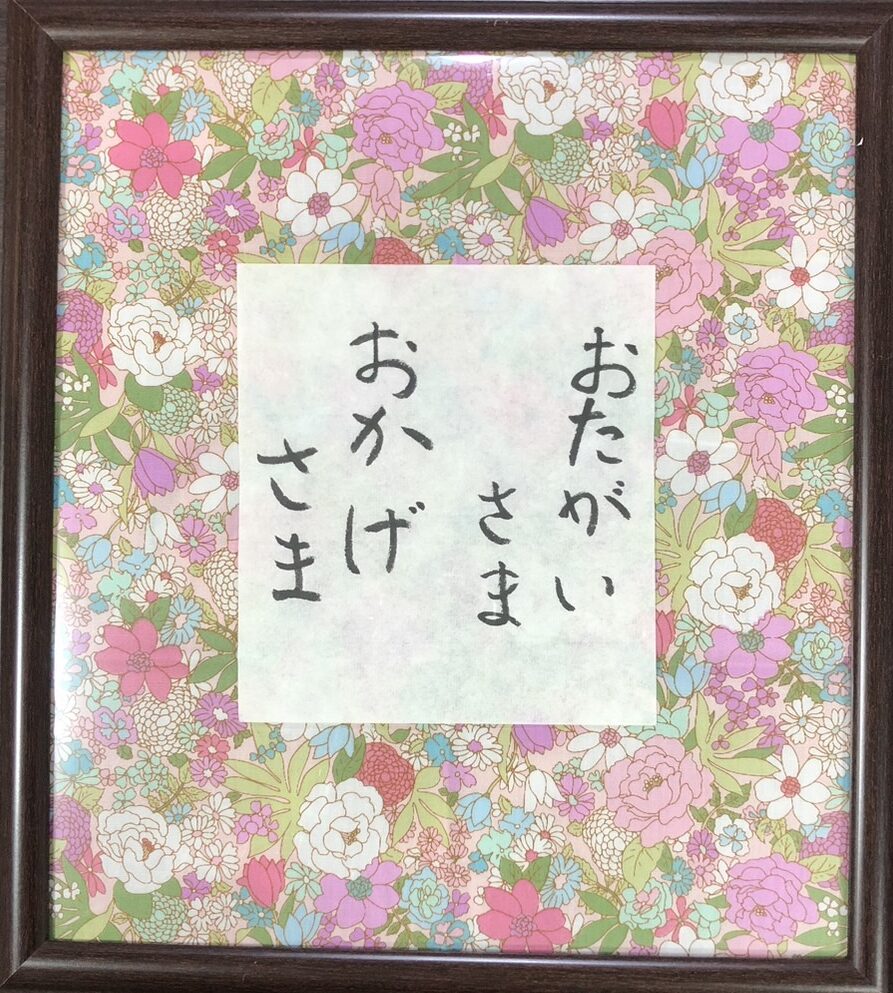 おたがい
さま
おかげ
さま